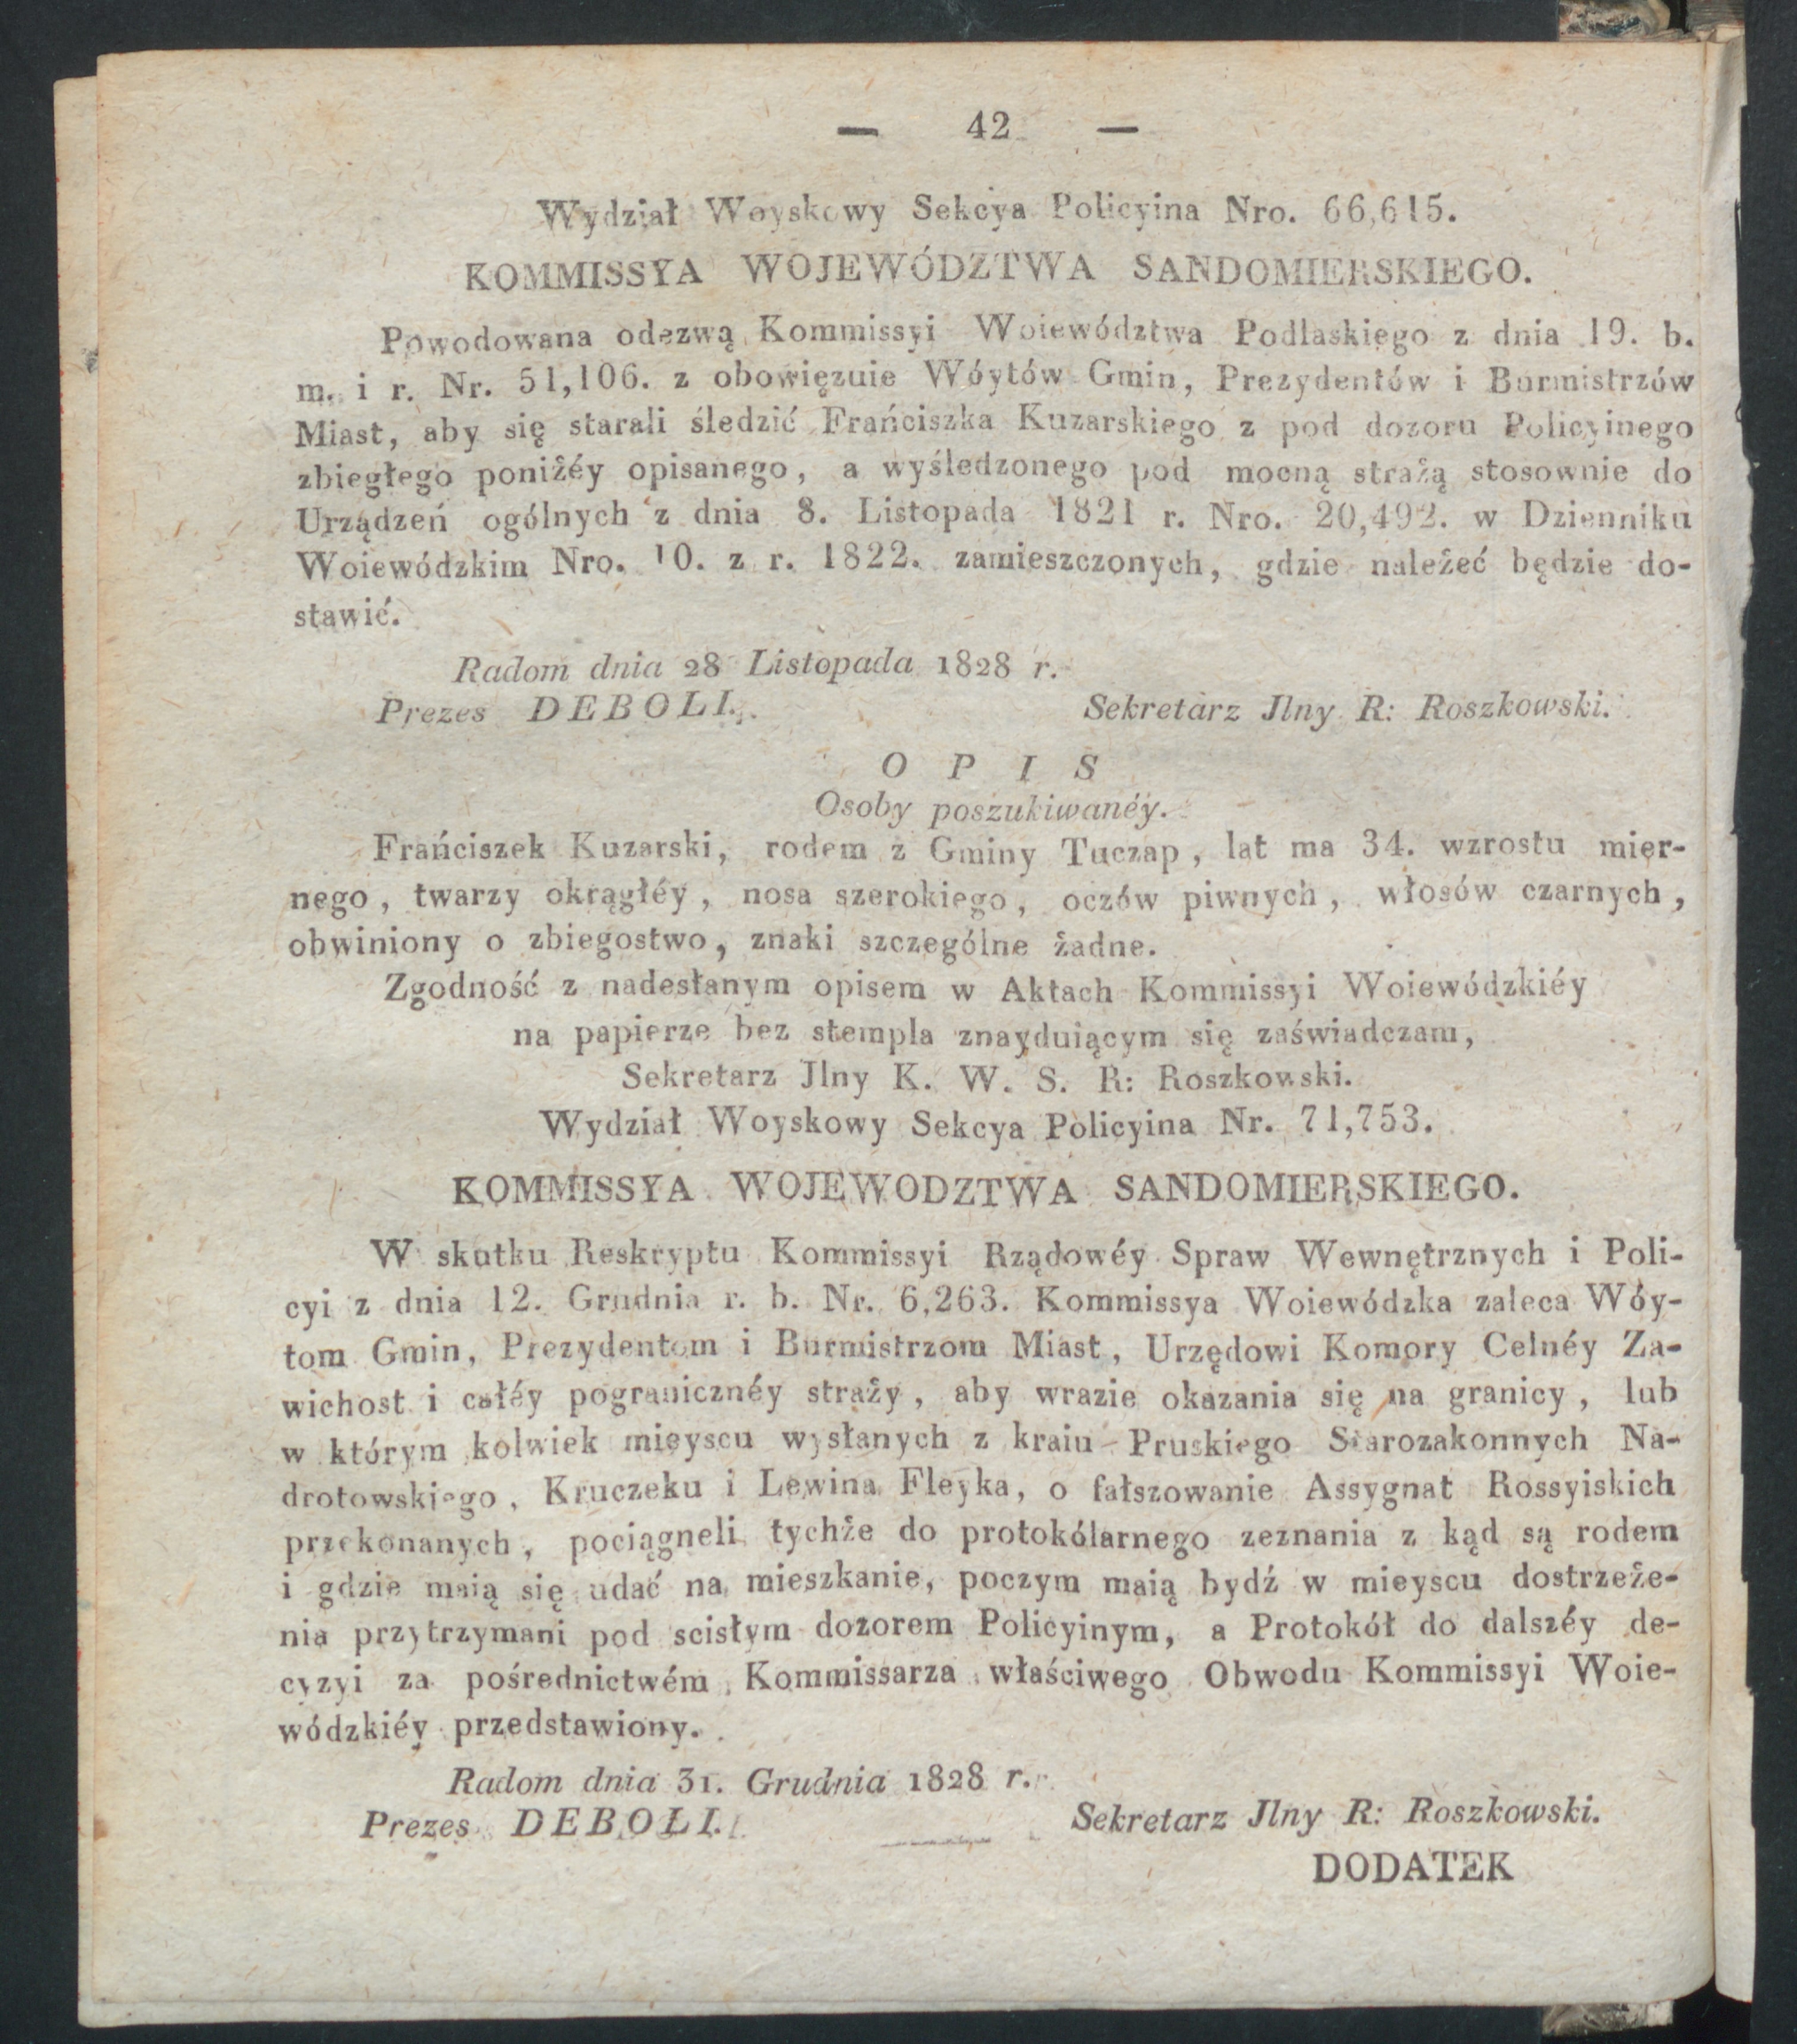 — 42 —
Wydział Woyskowy Sekcya Policyina Nro. 66,615.
KOMMISSYA WOJEWÓDZTWA SANDOMIERSKIEGO.
Powodowana odezwą Kommissyi Woiewództwa Podlaskiego z dnia 19. b.
m. i r. Nr. 51,106. z obowięzuie Wóytów Gmin, Prezydentów i Burmistrzów
Miast, aby się starali śledzić Frańciszka Kuzarskiego z pod dozoru Policyinego
zbiegłego poniżéy opisanego, a wyśledzonego pod mocną strażą stosownie do
Urządzeń ogólnych z dnia 8. Listopada 1821 r. Nro. 20,492. w Dzienniku
Woiewódzkim Nro. 10. z r. 1822. zamieszczonych, gdzie należeć będzie do-
stawić.
Radom dnia 28 Listopada 1828 r.
Prezes DEBOLI. Sekretarz Jlny R: Roszkowski.
O P I S
Osoby poszukiwanéy.
Frańciszek Kuzarski, rodem z Gminy Tuczap, lat ma 34. wzrostu mier-
nego, twarzy okrągłéy, nosa szerokiego, oczów piwnych, włosów czarnych,
obwiniony o zbiegostwo, znaki szczególne żadne.
Zgodność z nadesłanym opisem w Aktach Kommissyi Woiewódzkiéy
na papierze bez stempla znayduiącym się zaświadczam,
Sekretarz Jlny K. W. S. R: Roszkowski.
Wydział Woyskowy Sekcya Policyina Nr. 71,753.
KOMMISSYA WOJEWODZTWA SANDOMIERSKIEGO.
W skutku Reskryptu Kommissyi Rządowéy Spraw Wewnętrznych i Poli-
cyi z dnia 12. Grudnia r. b. Nr. 6,263. Kommissya Woiewódzka zaleca Wóy-
tom Gmin, Prezydentom i Burmistrzom Miast, Urzędowi Komory Celnéy Za-
wichost i całéy pograniczneý straży, aby wrazie okazania się na granicy, lub
w którym kolwiek mieyscu wysłanych z kraiu Pruskiego Starozakonnych Na-
drotowskiego, Kruczeku i Lewina Fleyka, o fałszowanie Assygnat Rossyiskich
przekonanych, pociągneli tychże do protokólarnego zeznania z kąd są rodem
i gdzie maią się udać na mieszkanie, poczym maią bydź w mieyscu dostrzeże-
nia przytrzymani pod scisłym dozorem Policyinym, a Protokół do dalszéy de-
cyzyi za pośrednictwém Kommissarza właściwego Obwodu Kommissyi Woie-
wódzkiéy przedstawiony.
Radom dnia 31. Grudnia 1828 r.
Prezes DEBOLI. Sekretarz Jlny R: Roszkowski.
DODATEK